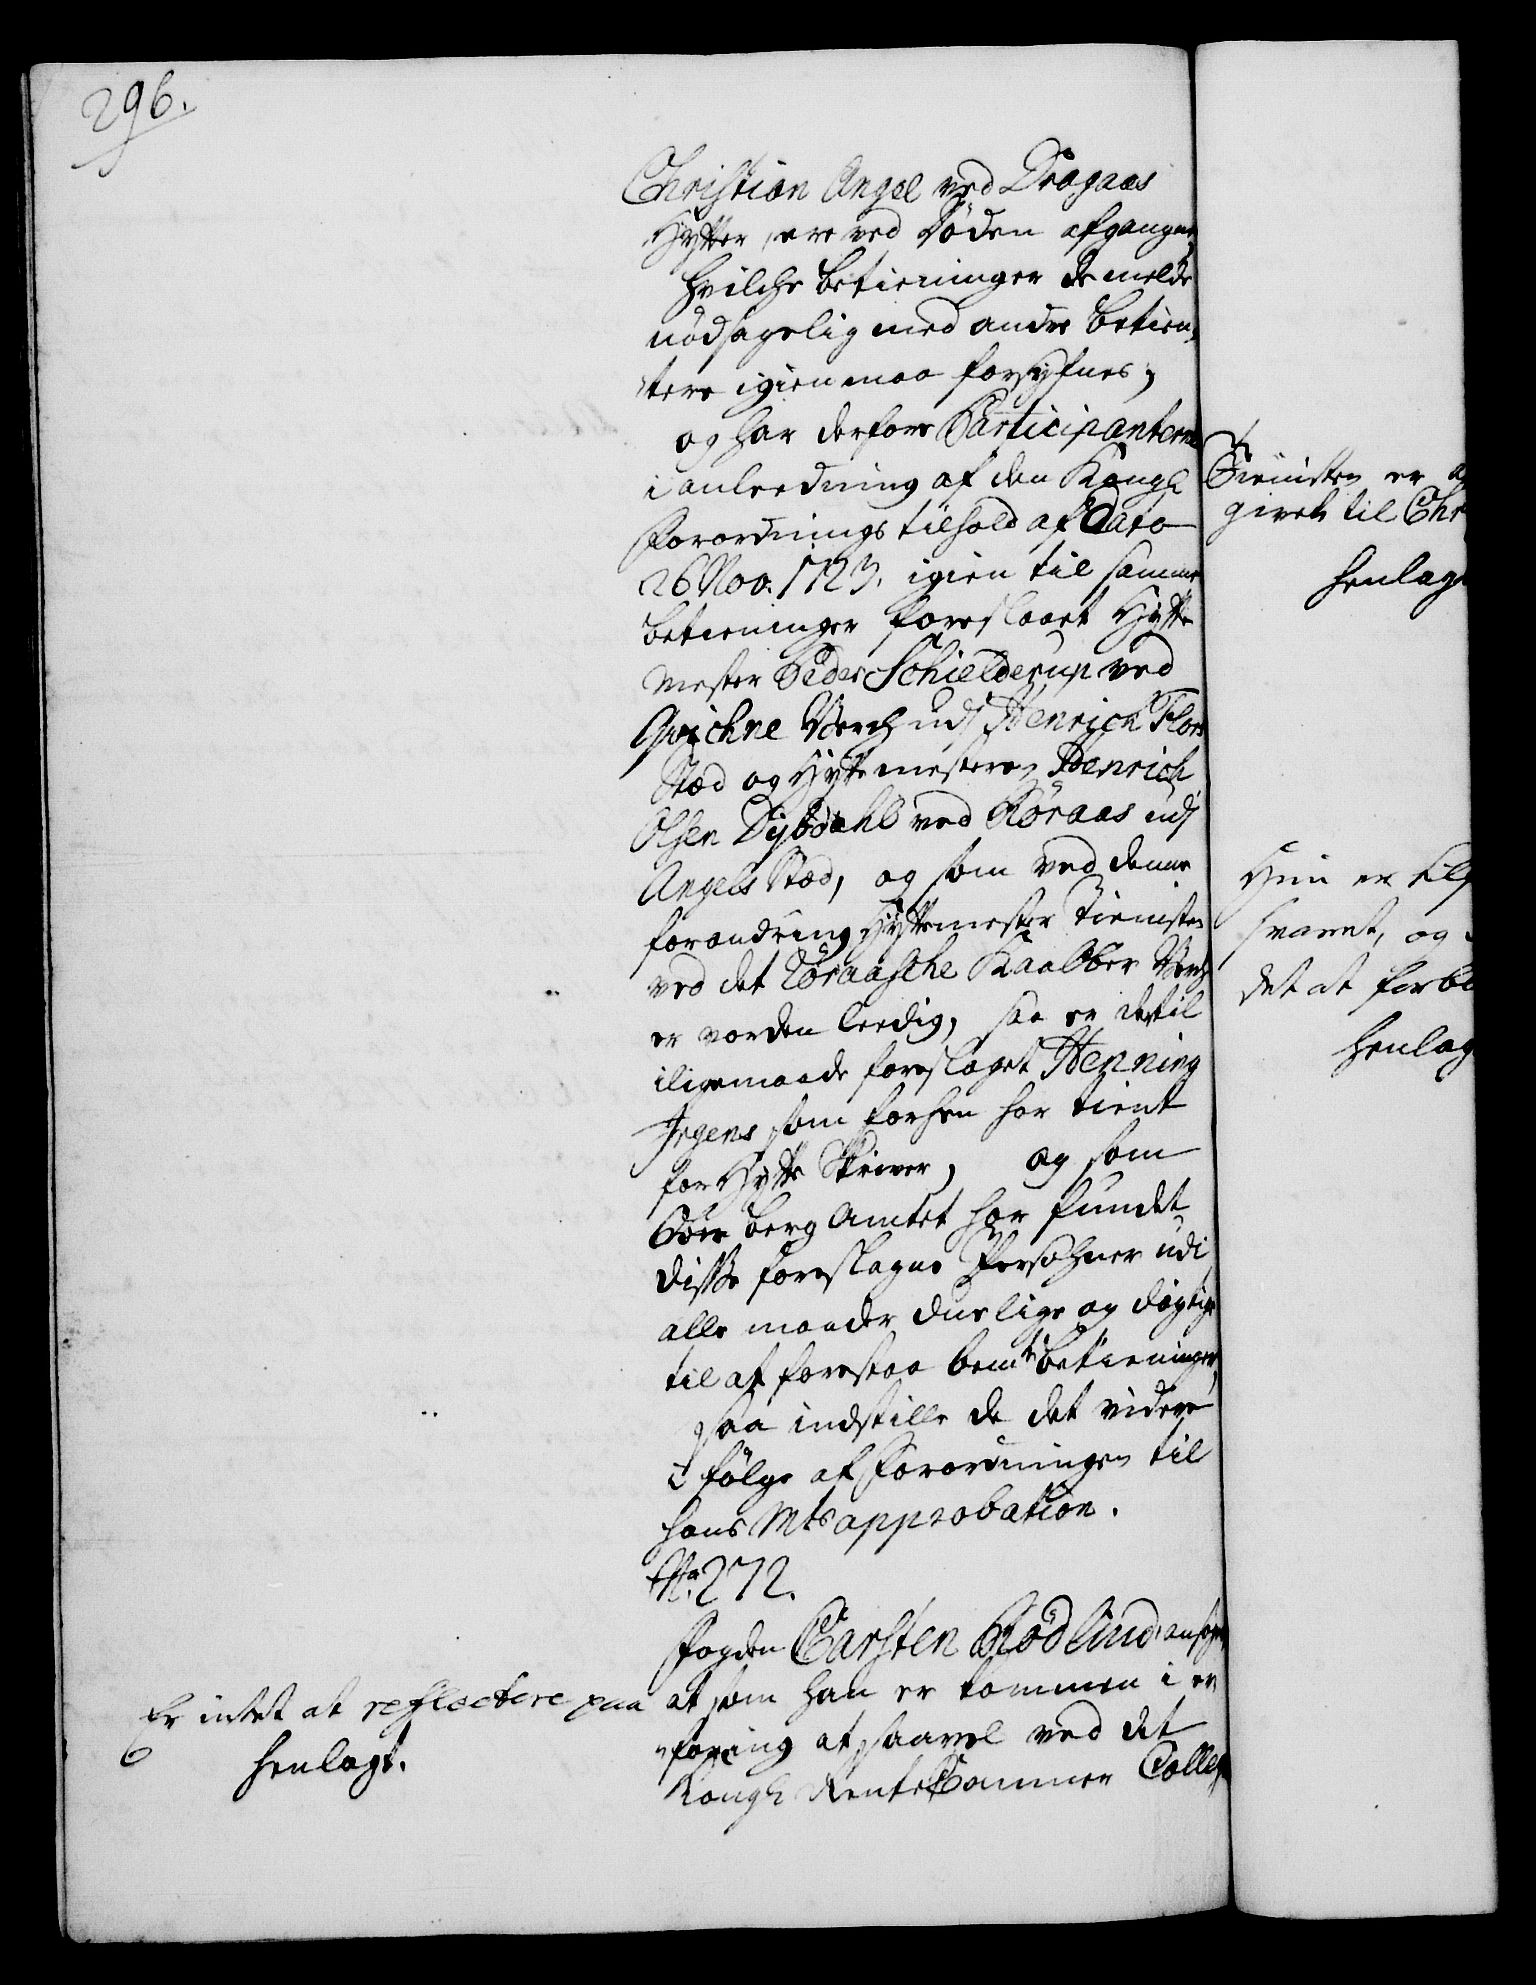 296.
Christian Angel ved Dragaas
Hytter, ere ved Døden afgangne,
hvilche betieninger de melde
nødsagelig med andre betien„
„tere igien maa forsyfnes,
og har derfore Participanterne
i anleedning af den Kongl
Forordnings tilhold af Dato
26 Nov. 1723. igien til samme
betieninger foreslaaet Hytte
Mester Peder Schielderup ved
Qvichne Verch udj Henrich Flors
Stæd og Hyttemesteren Henrich
Olsen Dybdahl ved Røraas udj
Angels Stæd, og som ved denne
forandring Hyttemester Tienisten
ved det Røraasche Kaabber Verch
er vorden leedig, saa er dertil
iligemaade foreslaget Henning
Irgens som forhen har tient
for Hytte Skriver, og som
Ober berg Amtet har fundet
disse foreslagne Persohner udi
alle maader duelige og dygtige
til at forestaa bemte betieninger,
saa indstille de det videre
i følge af Forordningen til
hans Mts approbation.
No. 272.
Fogden Carsten Rødlund, ansøger
at som han er kommen i er„
„faring at saavel ved det
Kongl Rente Cammer Colleg
Er intet at reflectere paa
henlagt.
Tienisten er
givet til Chr
henlag
Hun er
svaret, og
det at
henlag